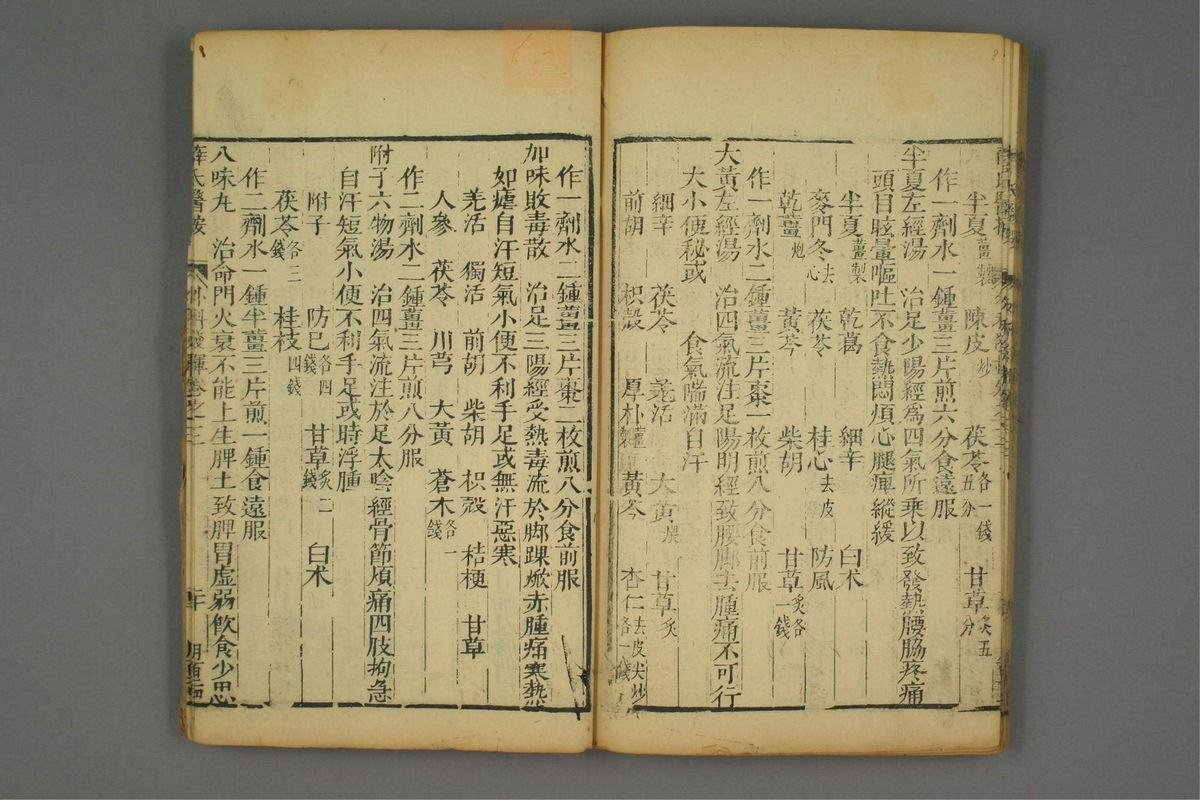 半夏薑製 陳皮炒 茯苓各一錢五分 甘草炙五分
作一劑水一鍾薑三片煎六分食遠服
半夏左經湯 治足少陽經爲四氣所乘以致發熱腰脇疼痛
頭目眩暈嘔吐不食熱悶煩心腿痺縱緩
半夏薑製 乾葛 細辛 白术
麥門冬去心 茯苓 桂心去皮 防風
乾薑炮 黃芩 柴胡 甘草炙各一錢
作一劑水二鍾薑三片棗一枚煎八分食前服
大黃左經湯 治四氣流注足陽明經致腰脚去腫痛不可行
大小便秘或 食氣喘滿自汗
細辛 茯苓 羗活 大黃煨 甘草炙
前胡 枳殼 厚朴薑製 黃芩 杏仁去皮尖炒各一錢
作一劑水二鍾薑三片棗二枚煎八分食前服
加味敗毒散 治足三陽經受熱毒流於脚踝焮赤腫痛寒熱
如瘧自汗短氣小便不利手足或無汗惡寒
羗活 獨活 前胡 柴胡 枳殼 桔梗 甘草
人參 茯苓 川芎 大黃 蒼术各一錢
作二劑水二鍾薑三片煎八分服
附子六物湯 治四氣流注於足太陰經骨節煩痛四肢拘急
自汗短氣小便不利手足或時浮腫
附子 防巳各四錢 甘草炙二錢 白术
茯苓各三錢 桂枝四錢
作二劑水一鍾半薑三片煎一鍾食遠服
八味丸 治命門火衰不能上生脾土致脾胃虛弱飲食少思
薛氏醫按 外科發揮卷之三 二十